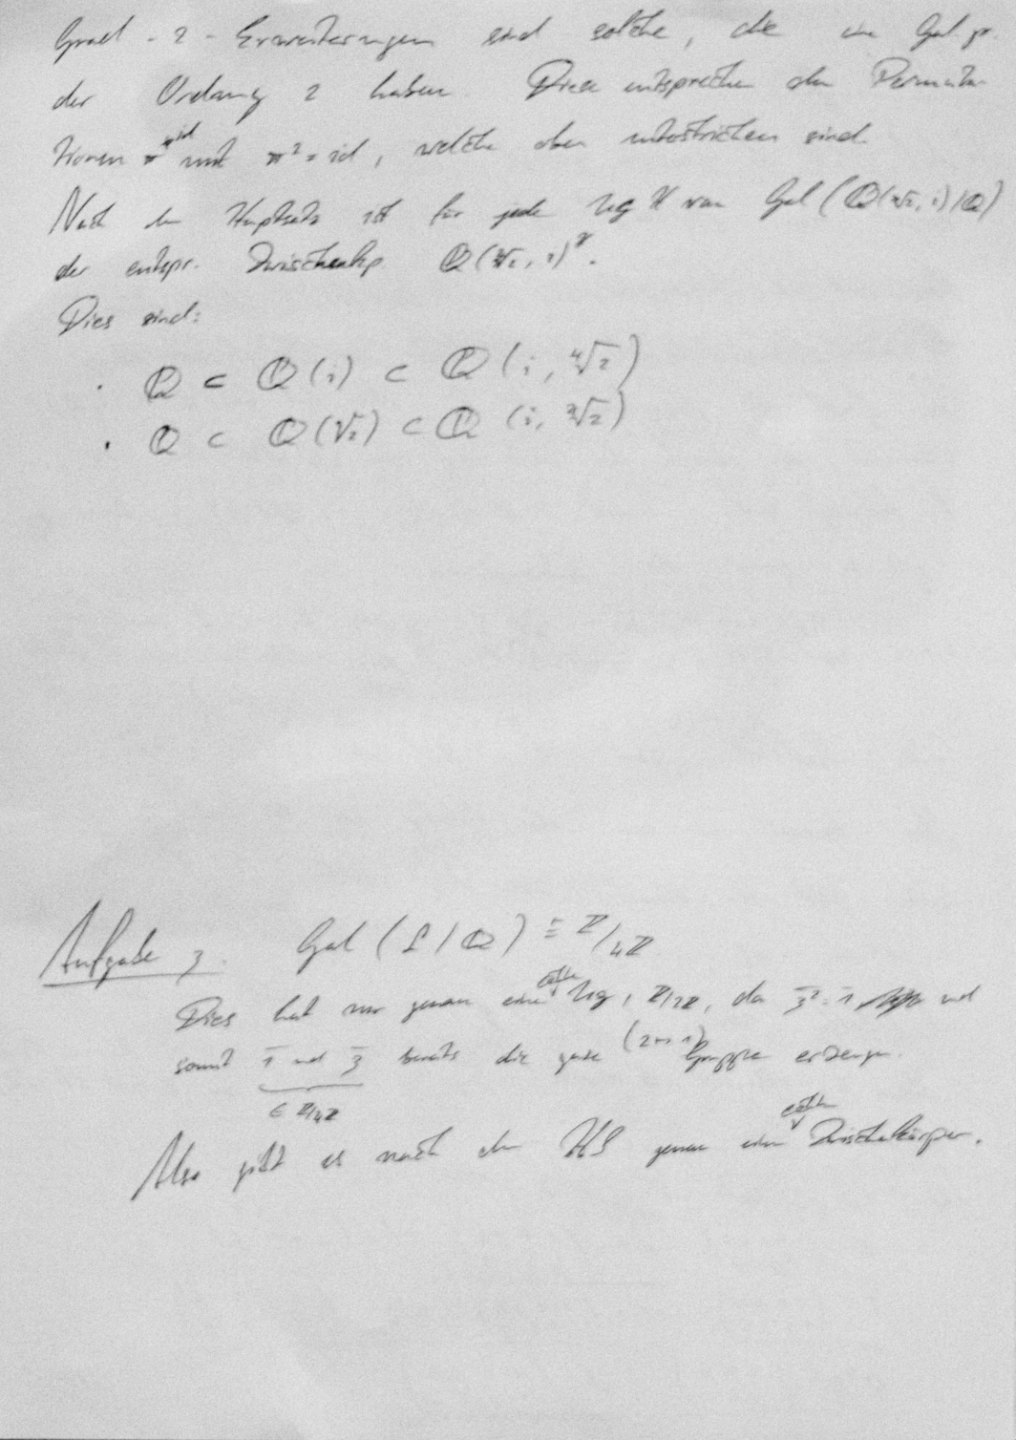 Grad-2-Erweiterungen sind solche, die eine Galgr.
der Ordnung 2 haben. Diese entsprechen den Permuta-
tionen π ≠ id mit π² = id, welche oben unterstrichen sind.
Nach dem Hauptsatz ist für jede Ug H von Gal(ℚ(∜2, i)/ℚ)
der entspr. Zwischenkp. ℚ(∜2, i)^H.
Dies sind:
· ℚ ⊂ ℚ(i) ⊂ ℚ(i, ∜2)
· ℚ ⊂ ℚ(√2) ⊂ ℚ(i, ∜2)
Aufgabe 3. Gal(L/ℚ) ≅ ℤ/4ℤ
Dies hat nur genau eine echte Ug, ℤ/2ℤ, da und
somit 1̄ und 3̄ bereits die ganze Gruppe erzeugen.
∈ ℤ/4ℤ
Also gibt es nach dem HS genau einen echten Zwischenkörper.